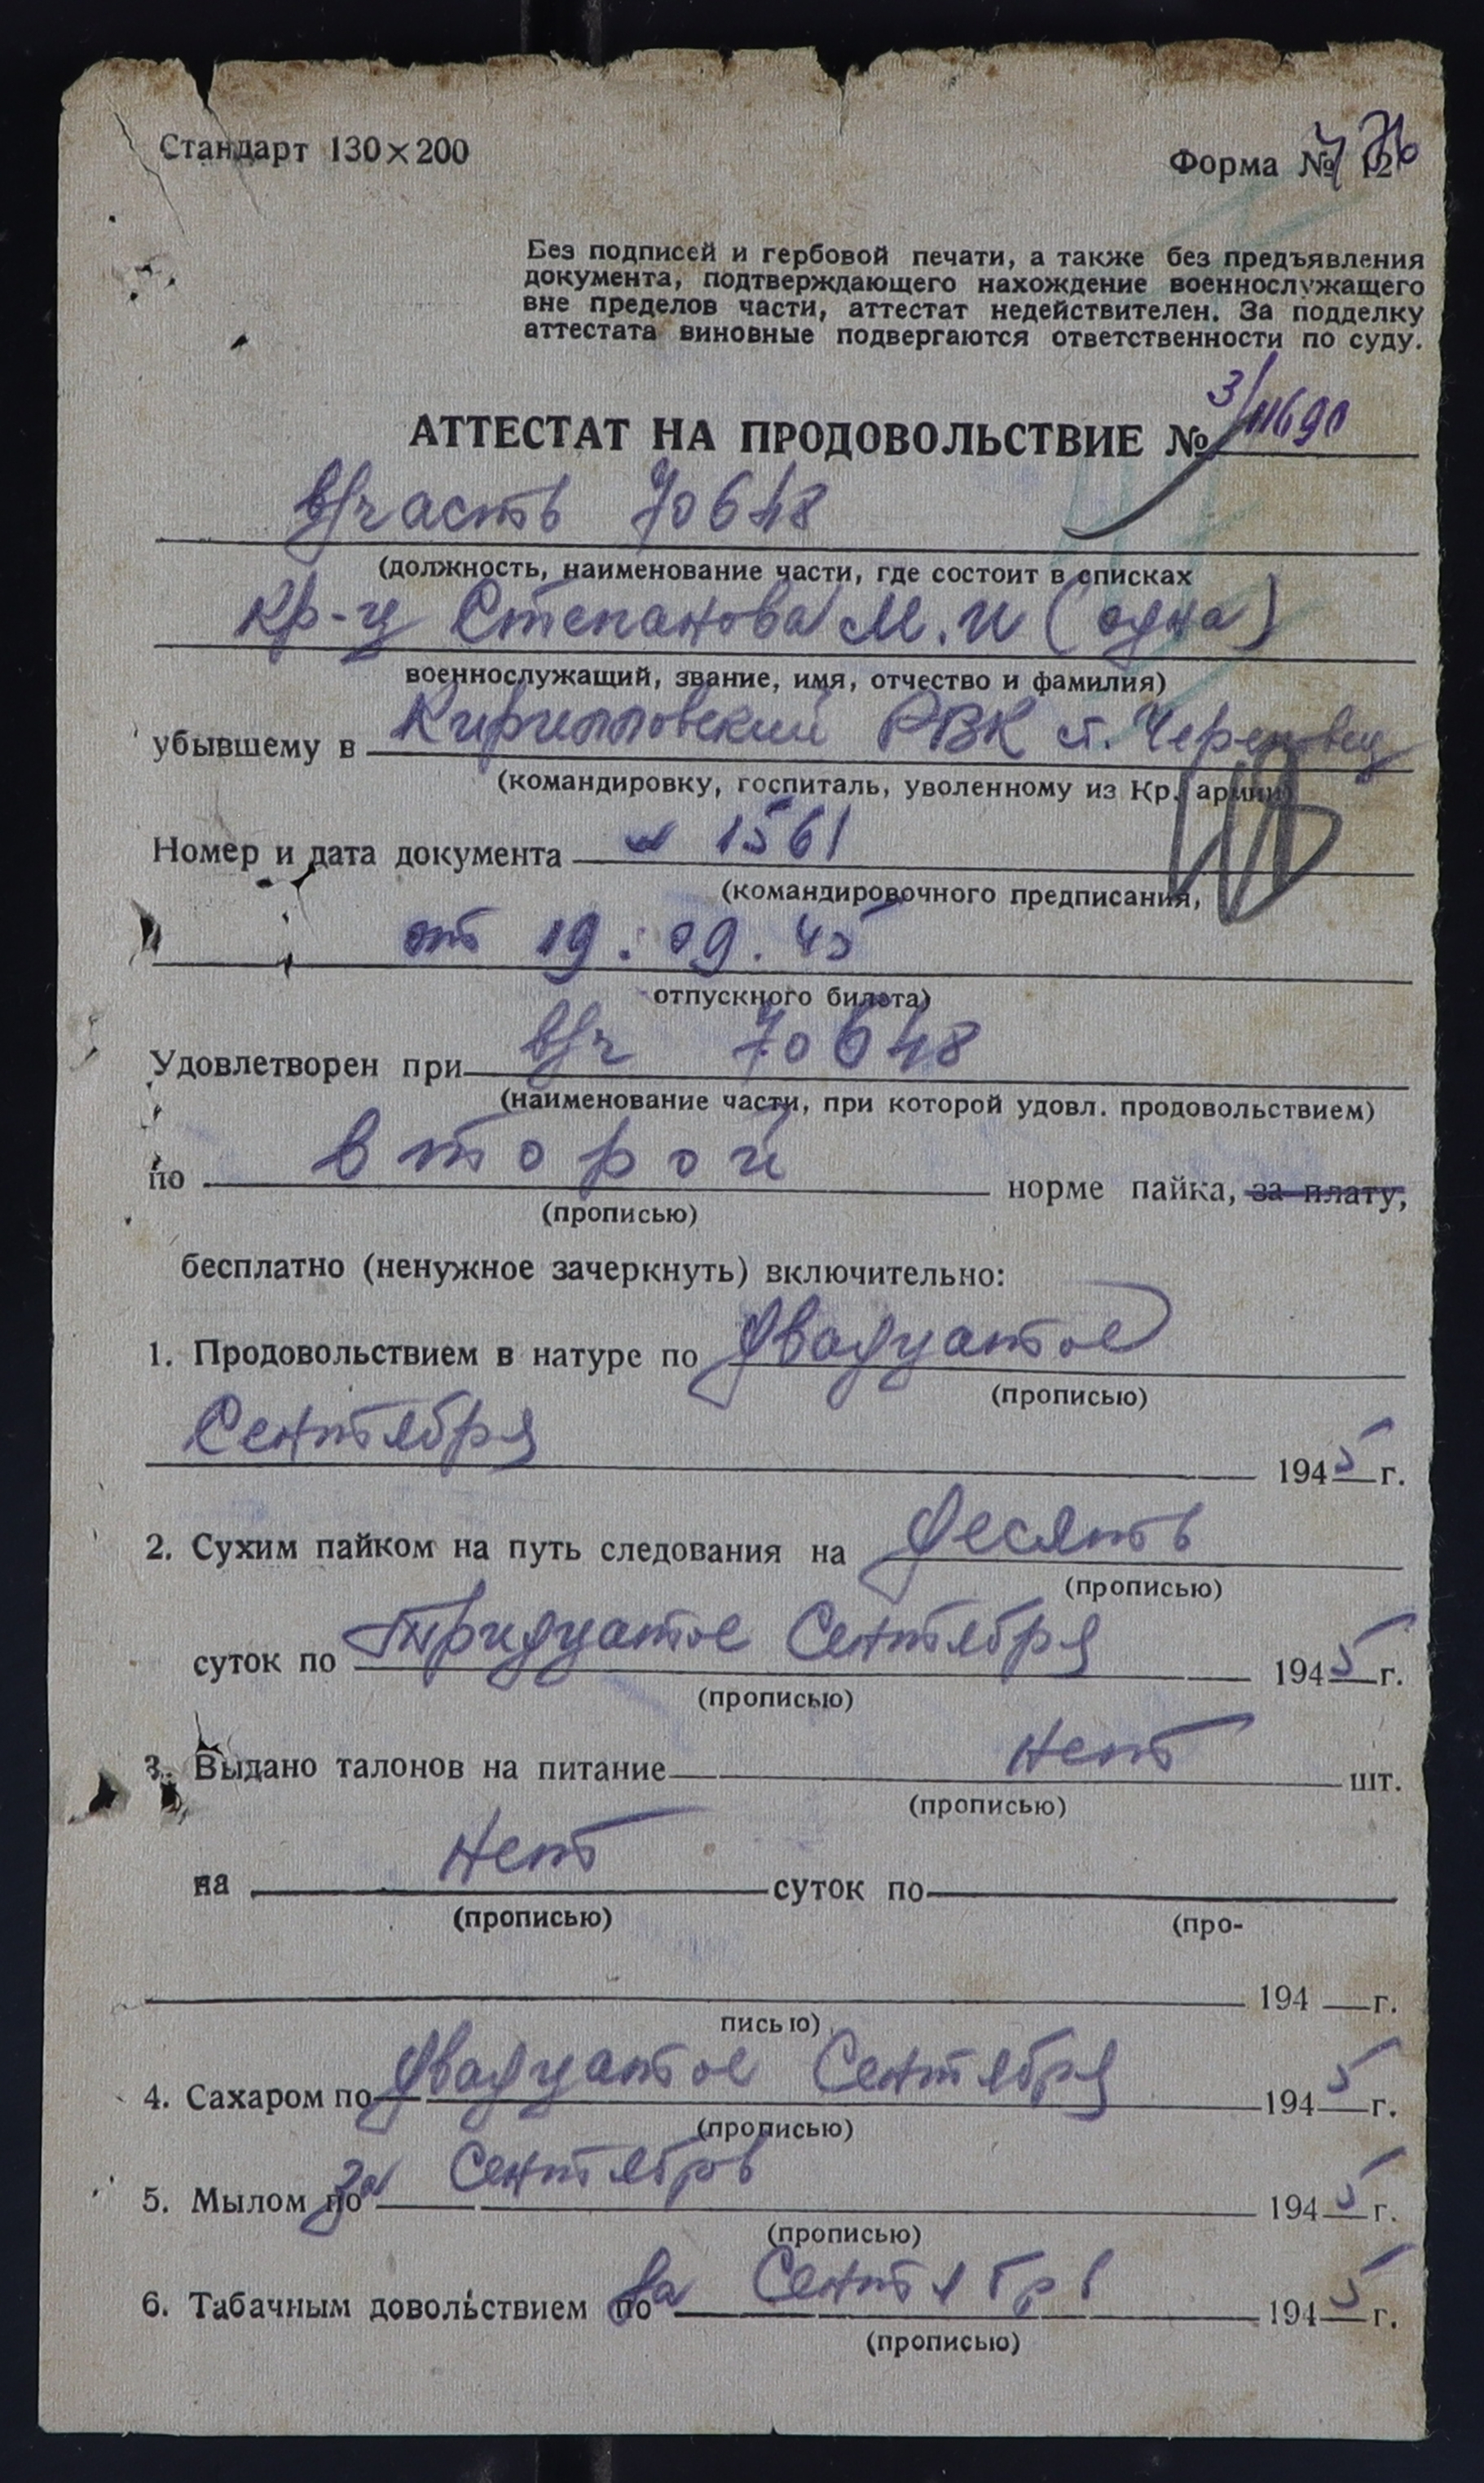 Стандарт 130×200
Форма № 12
Без подписей и гербовой печати, а также без предъявления
документа, подтверждающего нахождение военнослужащего
вне пределов части, аттестат недействителен. За подделку
аттестата виновные подвергаются ответственности по суду.
АТТЕСТАТ НА ПРОДОВОЛЬСТВИЕ № 3/11690
в/часть 70648
(должность, наименование части, где состоит в списках
кр-ц Степанова М. И (одна)
военнослужащий, звание, имя, отчество и фамилия)
убывшему в Кирилловский РВК ст. Череповец
(командировку, госпиталь, уволенному из Кр. армии)
Номер и дата документа 1561
(командировочного предписания,
от 19.09.45
отпускного билета)
Удовлетворен при в/ч 70648
(наименование части, при которой удовл. продовольствием)
по второй норме пайка, за плату,
(прописью)
бесплатно (ненужное зачеркнуть) включительно:
1. Продовольствием в натуре по двадцатое
(прописью)
Сентября 1945 г.
2. Сухим пайком на путь следования на десять
(прописью)
суток по Тридцатое Сентября 1945 г.
(прописью)
3. Выдано талонов на питание нет шт.
(прописью)
на нет суток по
(прописью) (про-
194 г.
писью)
4. Сахаром по двадцатое Сентября 1945 г.
(прописью)
5. Мылом по за Сентябрь 1945 г.
(прописью)
6. Табачным довольствием по за Сентябрь 1945 г.
(прописью)